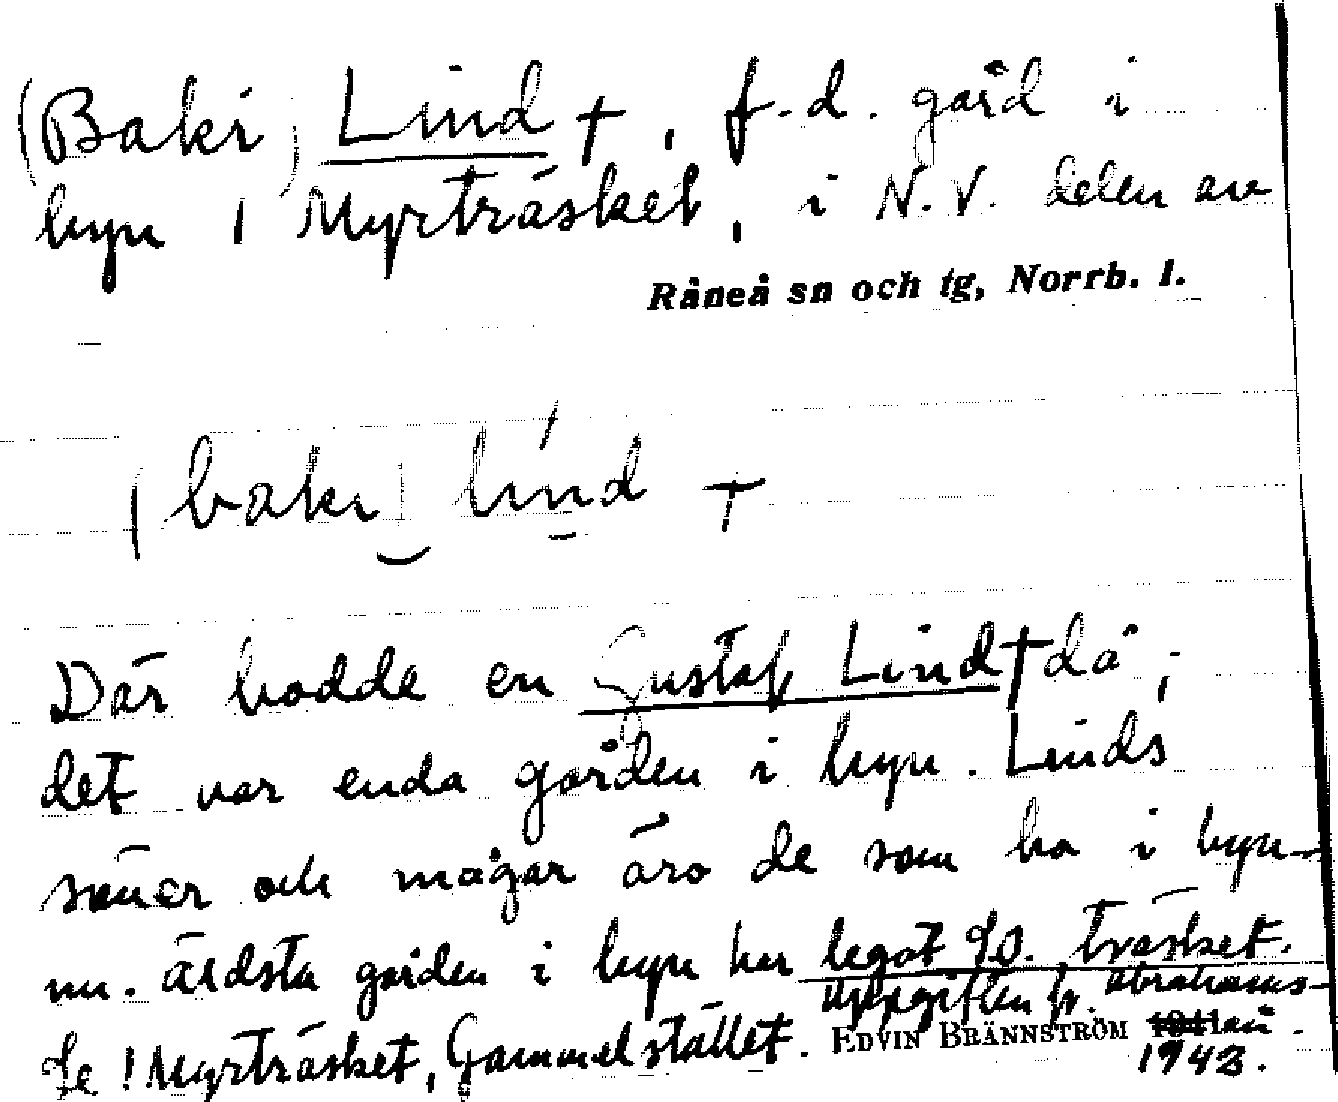 (Baki) Lind +, f.d. gård i
byn i Myrträsket, i N.V. delen av
Råneå sn och tg, Norrb. l.
(baki) lind +
Där bodde en Gustaf Lind + då,
det var enda gården i byn. Linds
söner och mågar äro de som bo i byn
nu. Äldsta gården i byn har legat SO. träsket.
Uppgiften fr. Abrahams-
Se! Myrträsket, Gammelstället. EDVIN BRÄNNSTRÖM 1941
1943.